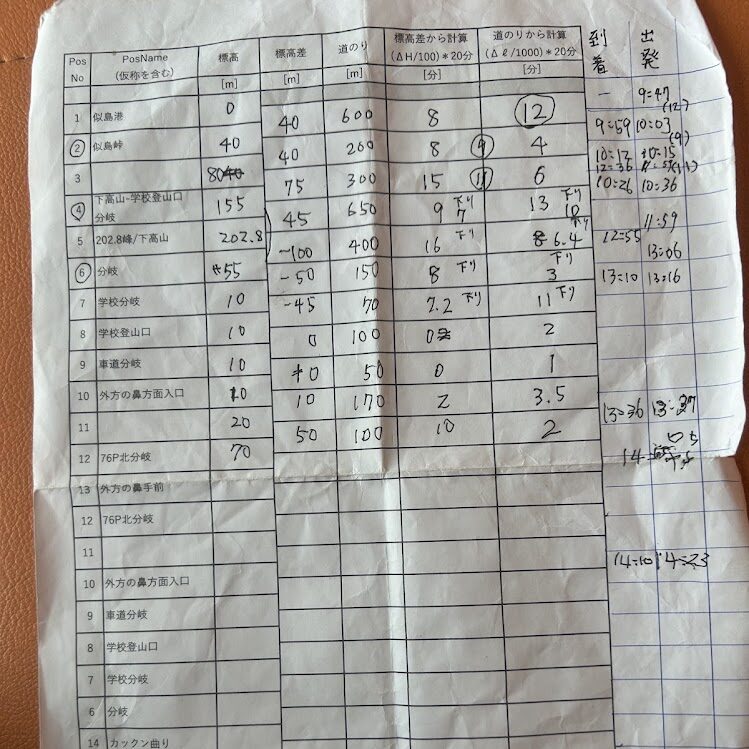 Pos No PosName (仮称を含む) 標高 [m] 標高差 [m] 道のり [m] 標高差から計算 (ΔH/100)*20分 [分] 道のりから計算 (Δℓ/1000)*20分 [分] 到着 出発
1 似島港 0 — 9:47
40 600 8 12 (12)
2 似島峠 40 9:59 10:03
40 200 8 9 4 (9)
3 80 10:12 10:15
75 300 15 11 6 12:36
4 下高山-学校登山口分岐 155 10:26 10:36
45 650 9 下り 7 13 下り 10
5 202.8峰/下高山 202.8 12:55 11:59
-100 400 16 下り 6.4 下り 13:06
6 分岐 55 13:10 13:16
-50 150 8 下り 3 下り
7 学校分岐 10
-45 70 7.2 下り 11 下り
8 学校登山口 10
0 100 0 2
9 車道分岐 10
0 50 0 1
10 外方の鼻方面入口 10 13:36
10 170 2 3.5
11 20
50 100 10 2
12 76P北分岐 70 14
13 外方の鼻手前
12 76P北分岐
11 14:10 14:23
10 外方の鼻方面入口
9 車道分岐
8 学校登山口
7 学校分岐
6 分岐
14 カックン曲り